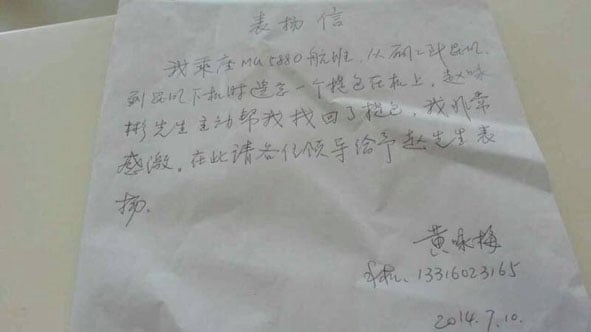 表扬信
我乘座MU5880航班，从丽江到昆明，
到昆明下机时遗忘一个提包在机上，赵咏
彬先生主动帮我找回了提包，我非常
感激。在此请各位领导给予赵先生表
扬。
黄咏梅
手机：13316023165
2014.7.10.